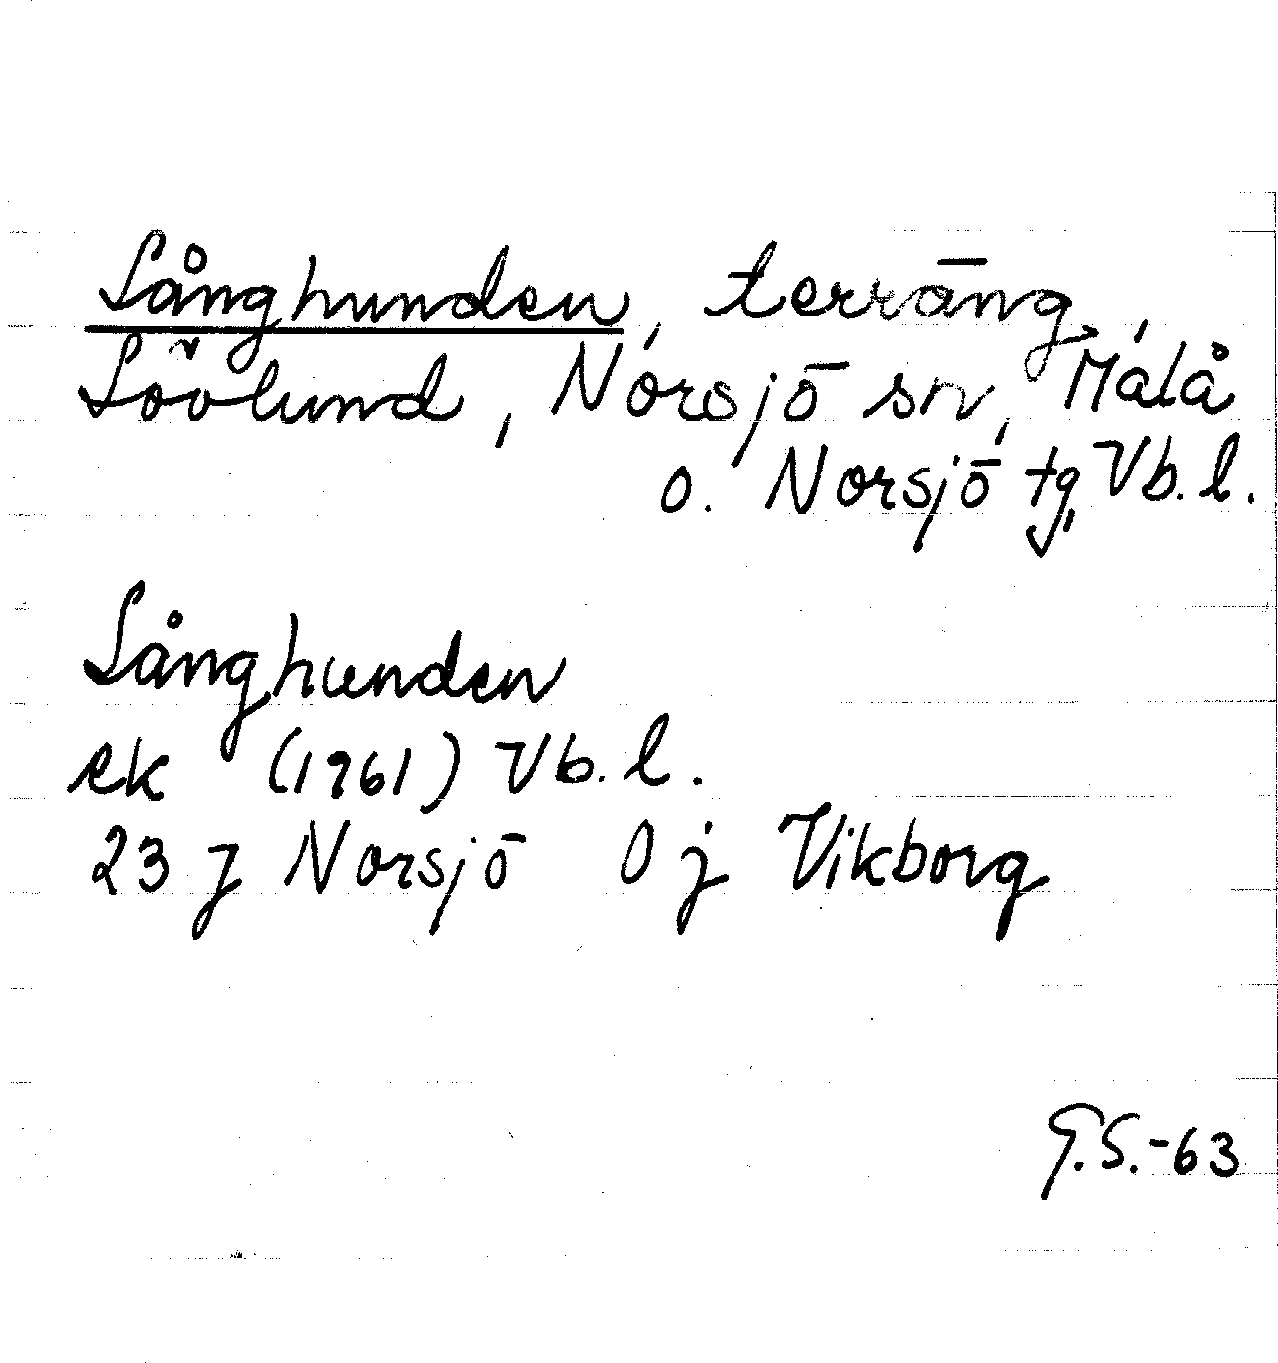 Långhunden, terräng,
Lövlund, Norsjö sn, Malå
o. Norsjö tg, Vb. l.
Långhunden
ek (1961) Vb. l.
23 J Norsjö 0 j Vikborg
G.S.-63